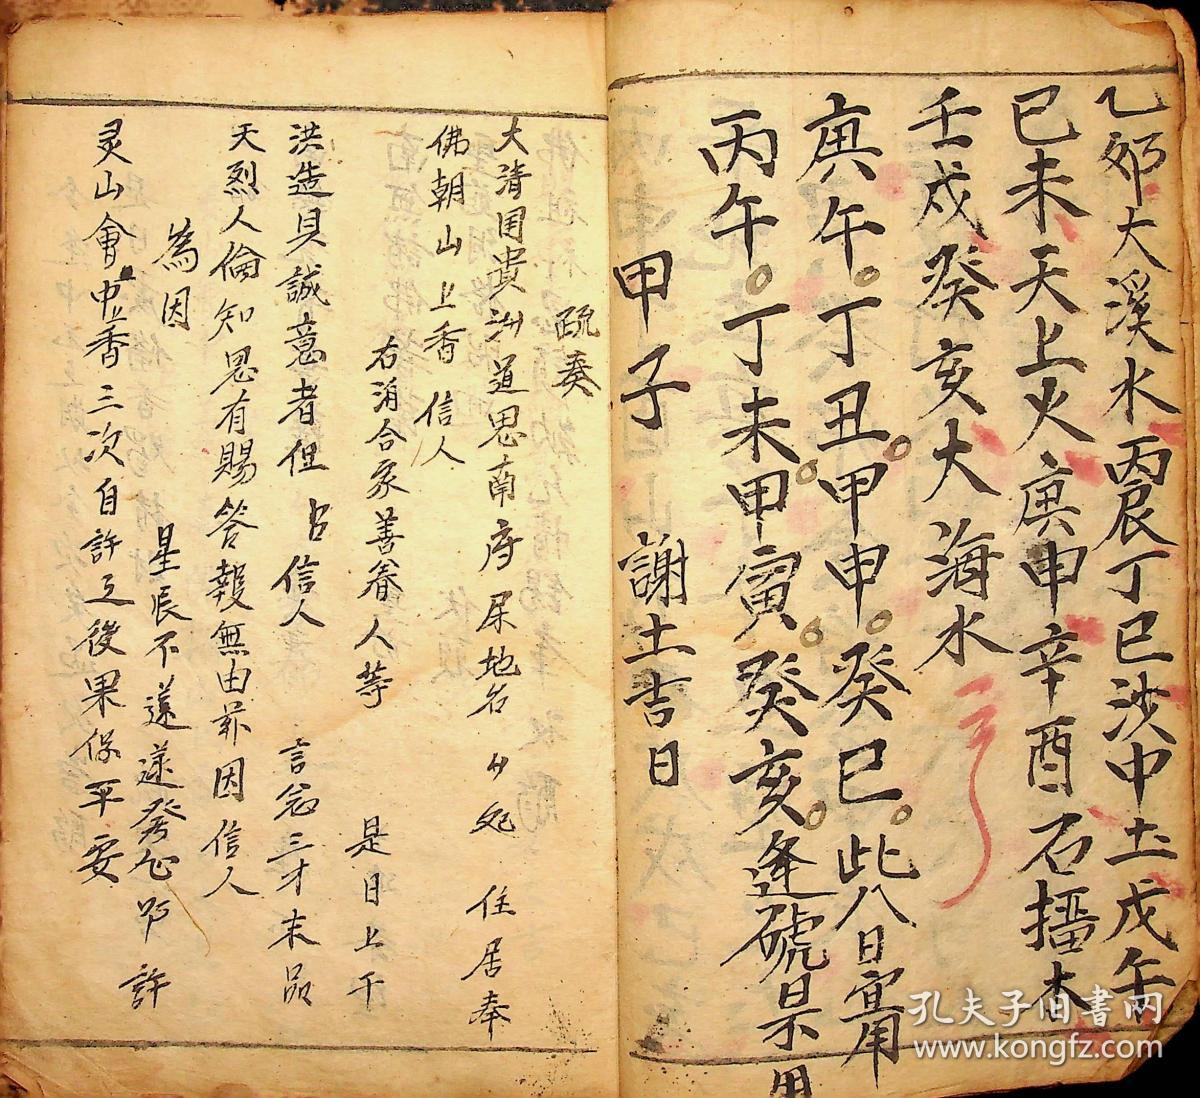 乙夘大溪水丙辰丁巳沙中土戊午
己未天上火庚申辛酉石擂木
壬戌癸亥大海水
庚午丁丑甲申癸巳此八日宜用
丙午丁未甲寅癸亥逢號日不用
甲子 謝土吉日
疏奏
大清国貴洲道思南府 地名 住居奉
佛朝山上香信人
右洎合家善眷人等 是日上干
洪造具誠意者但 信人 言念三才末品
天烈人倫知恩有賜答報無由兹因信人
為因 星辰不 遂發心 許
灵山會中香三次自許之後果保平安
孔夫子旧书网
www.kongfz.com